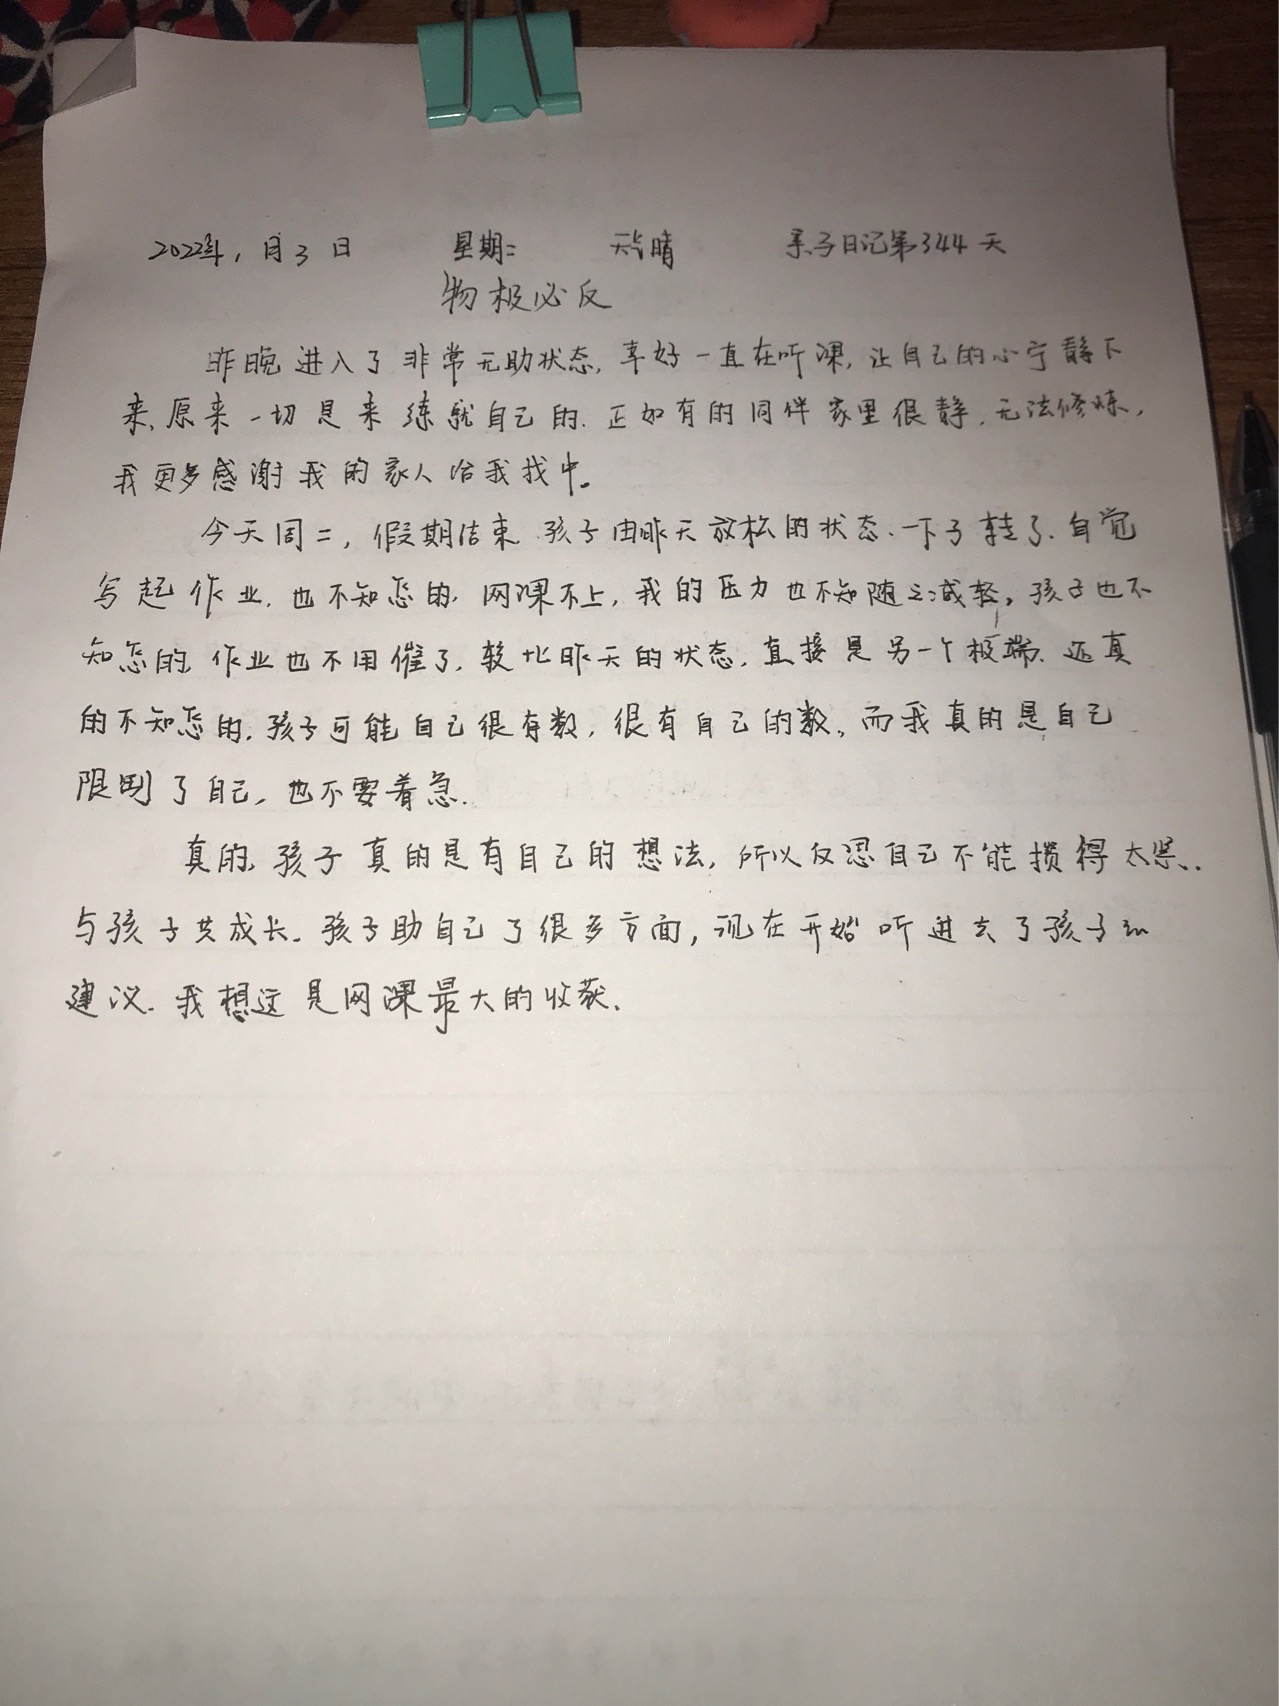 2022年1月3日 星期二 天气晴 亲子日记第344天
物极必反
昨晚进入了非常无助状态,幸好一直在听课,让自己的心宁静下
来,原来一切是来练就自己的.正如有的同伴家里很静,无法修炼,
我更多感谢我的家人给我找中。
今天周二,假期结束 孩子由昨天放松的状态.一下子转了.自觉
写起作业,也不知怎的,网课不上,我的压力也不知随之减轻。孩子也不
知怎的,作业也不用催了,较比昨天的状态,直接是另一个极端.还真
的不知怎的,孩子可能自己很有数,很有自己的数。而我真的是自己
限制了自己,也不要着急.
真的,孩子真的是有自己的想法,所以反思自己不能攒得太紧.
与孩子共成长.孩子助自己了很多方面,现在开始听进去了孩子的
建议.我想这是网课最大的收获.